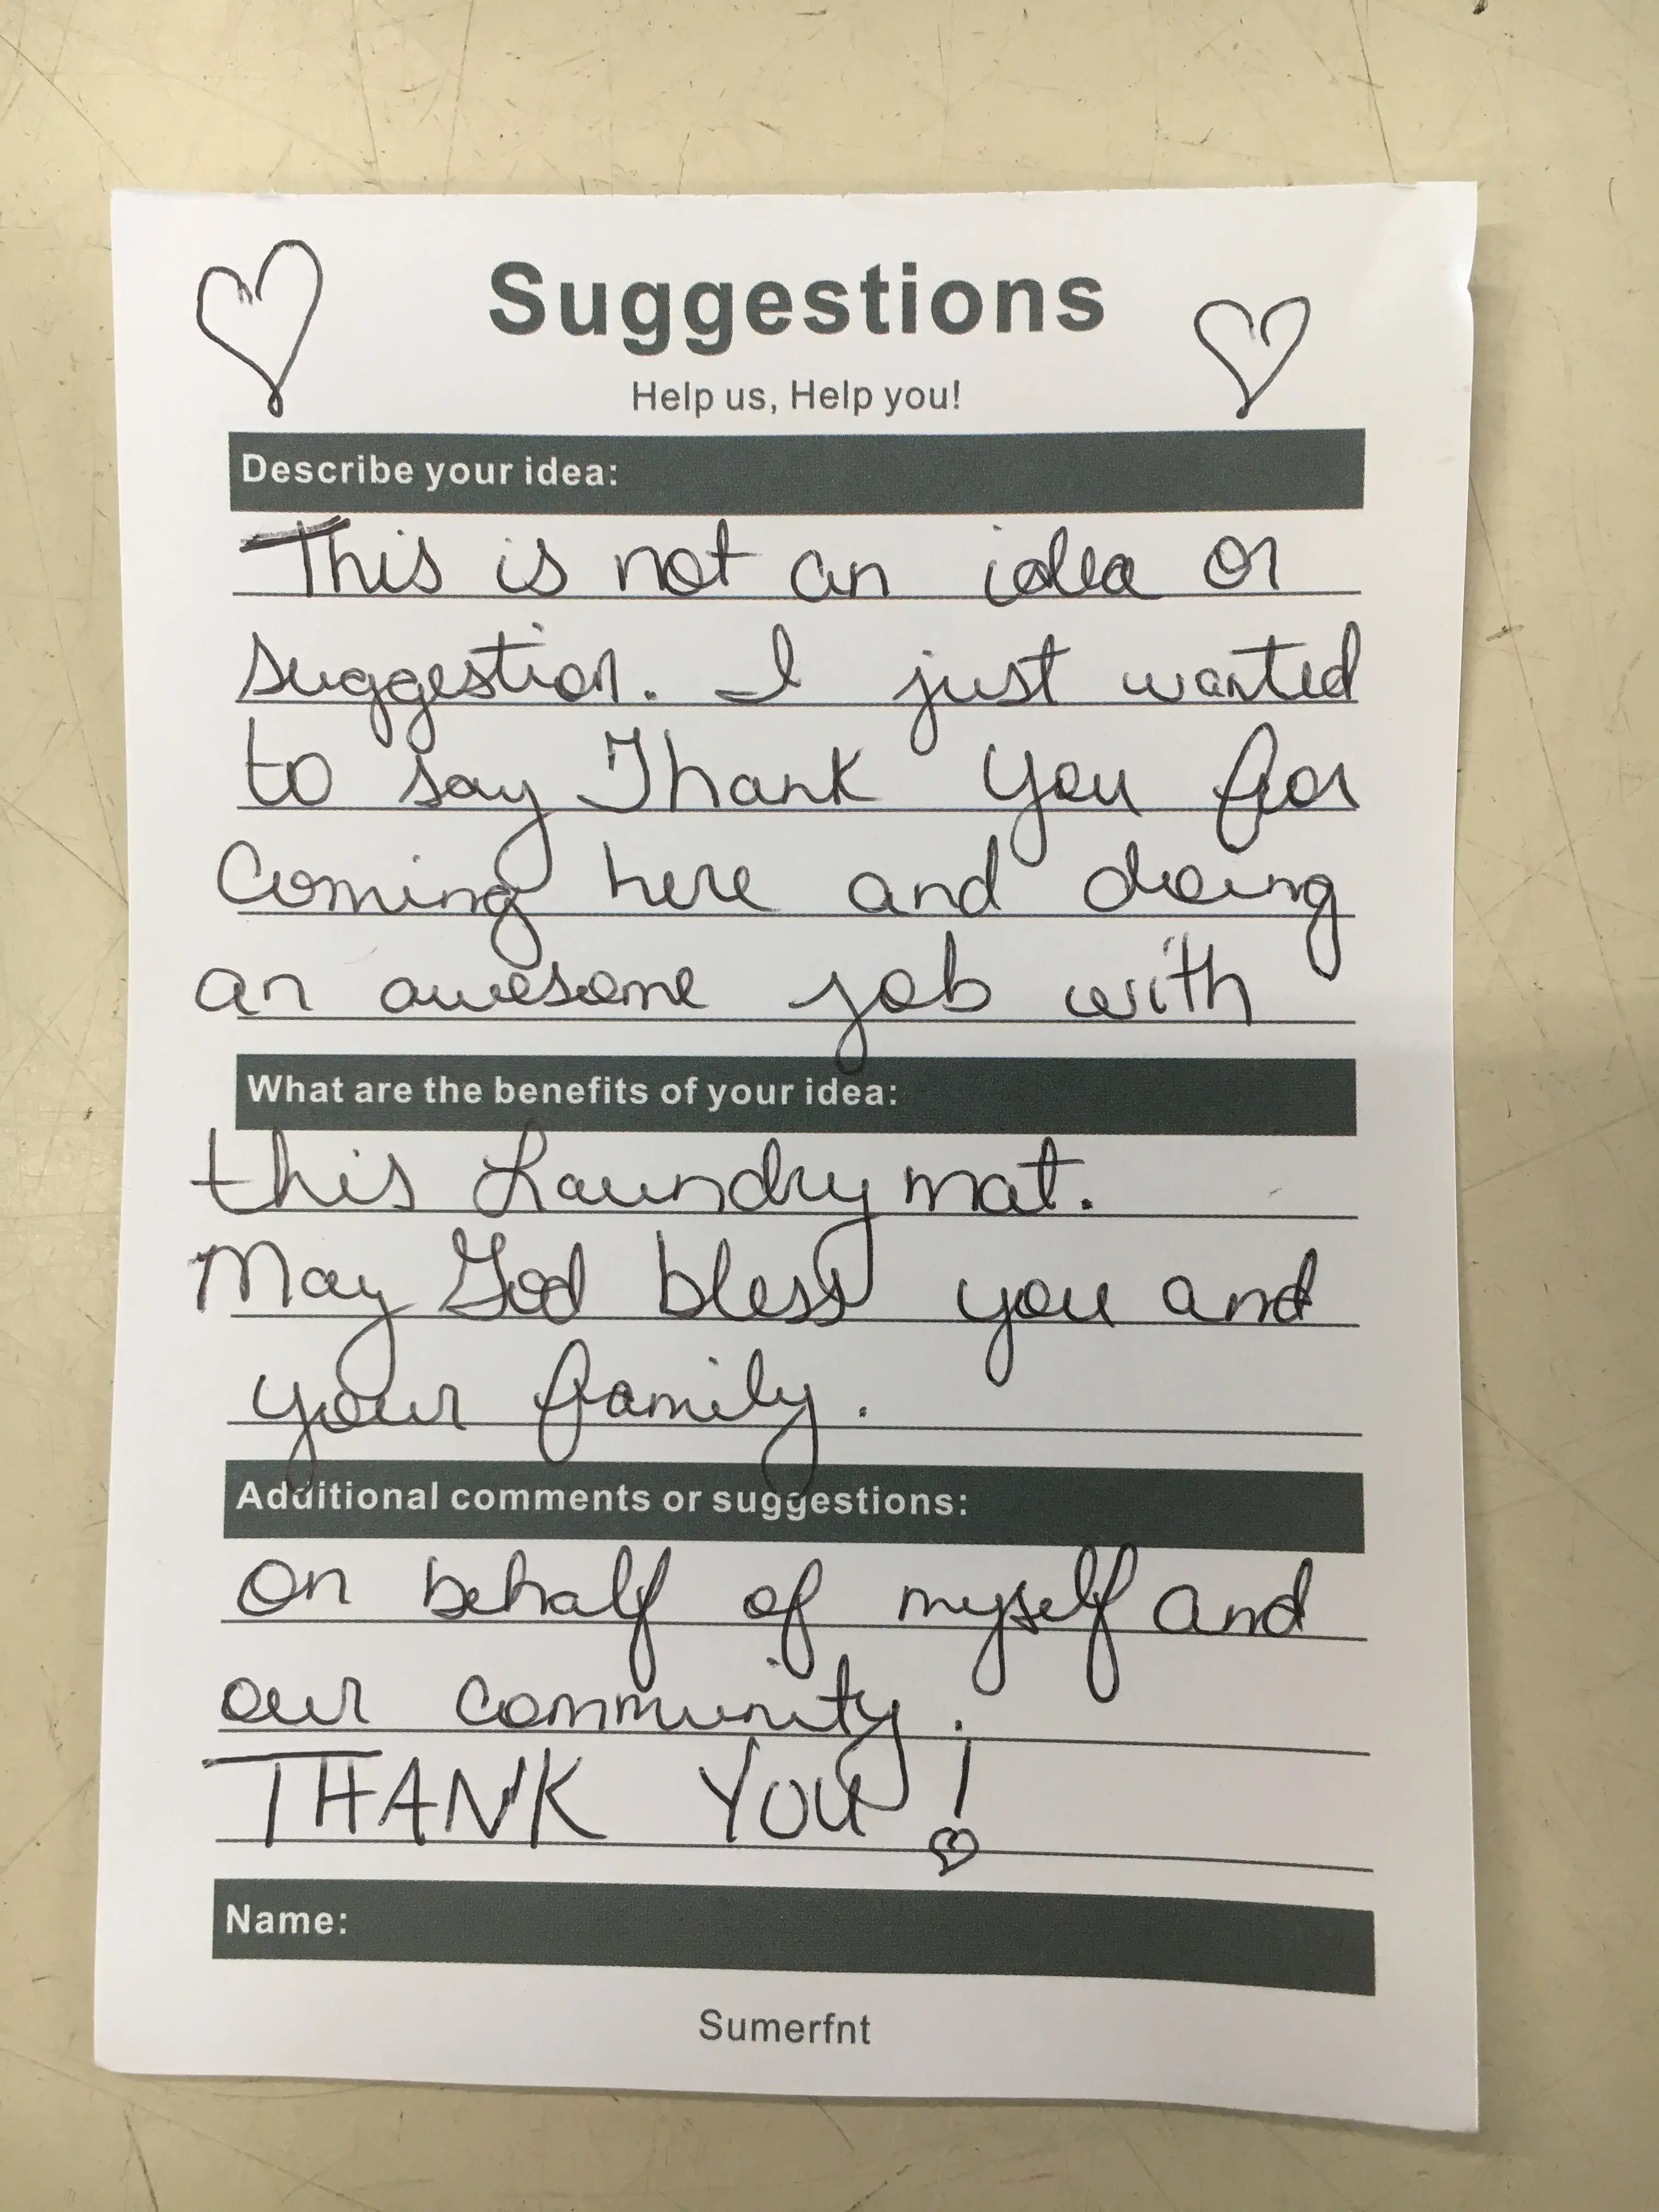 Suggestions
Help us, Help you!
Describe your idea:
This is not an idea or
suggestion. I just wanted
to say Thank you for
Coming here and doing
an awesome job with
What are the benefits of your idea:
this Laundry mat.
May God bless you and
your family.
Additional comments or suggestions:
On behalf of myself and
our community.
THANK YOU!
Name:
Sumerfnt